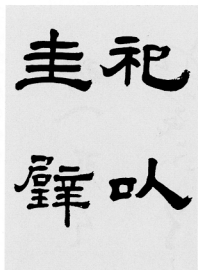 祀以
圭璧